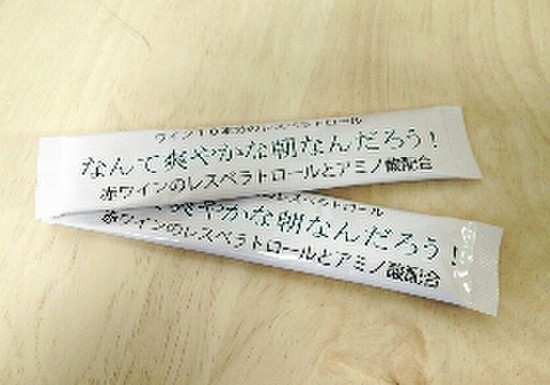 ワイン10本分のレスベラトロール
なんて爽やかな朝なんだろう！
赤ワインのレスベラトロールとアミノ酸配合
トロール
爽やかな朝なんだろう！
赤ワインのレスベラトロールとアミノ酸配合